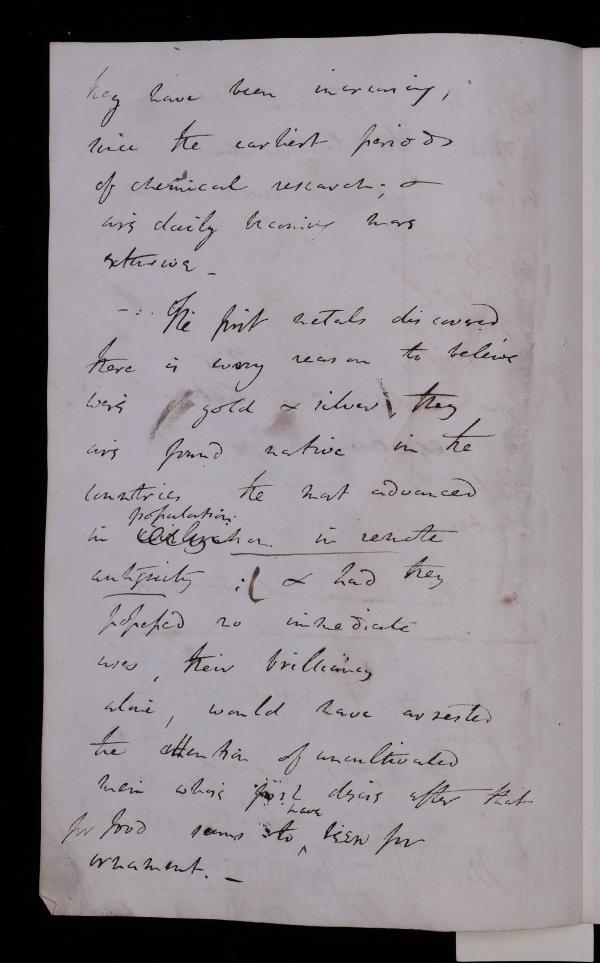 they have been increasing,
since the earliest periods
of chemical research; &
are daily becoming more
extensive _
— . . The first metals discovered
there is every reason to believe
were gold & silver, they
are found native in the
countries the most advanced
population
in civilization in remote
antiquity ; ( & had they
possessed no immediate
uses, their brilliancy
alone, would have arrested
the attention of uncultivated
men whose first desire after that
have
for food seems to ‸ been for
ornament. _